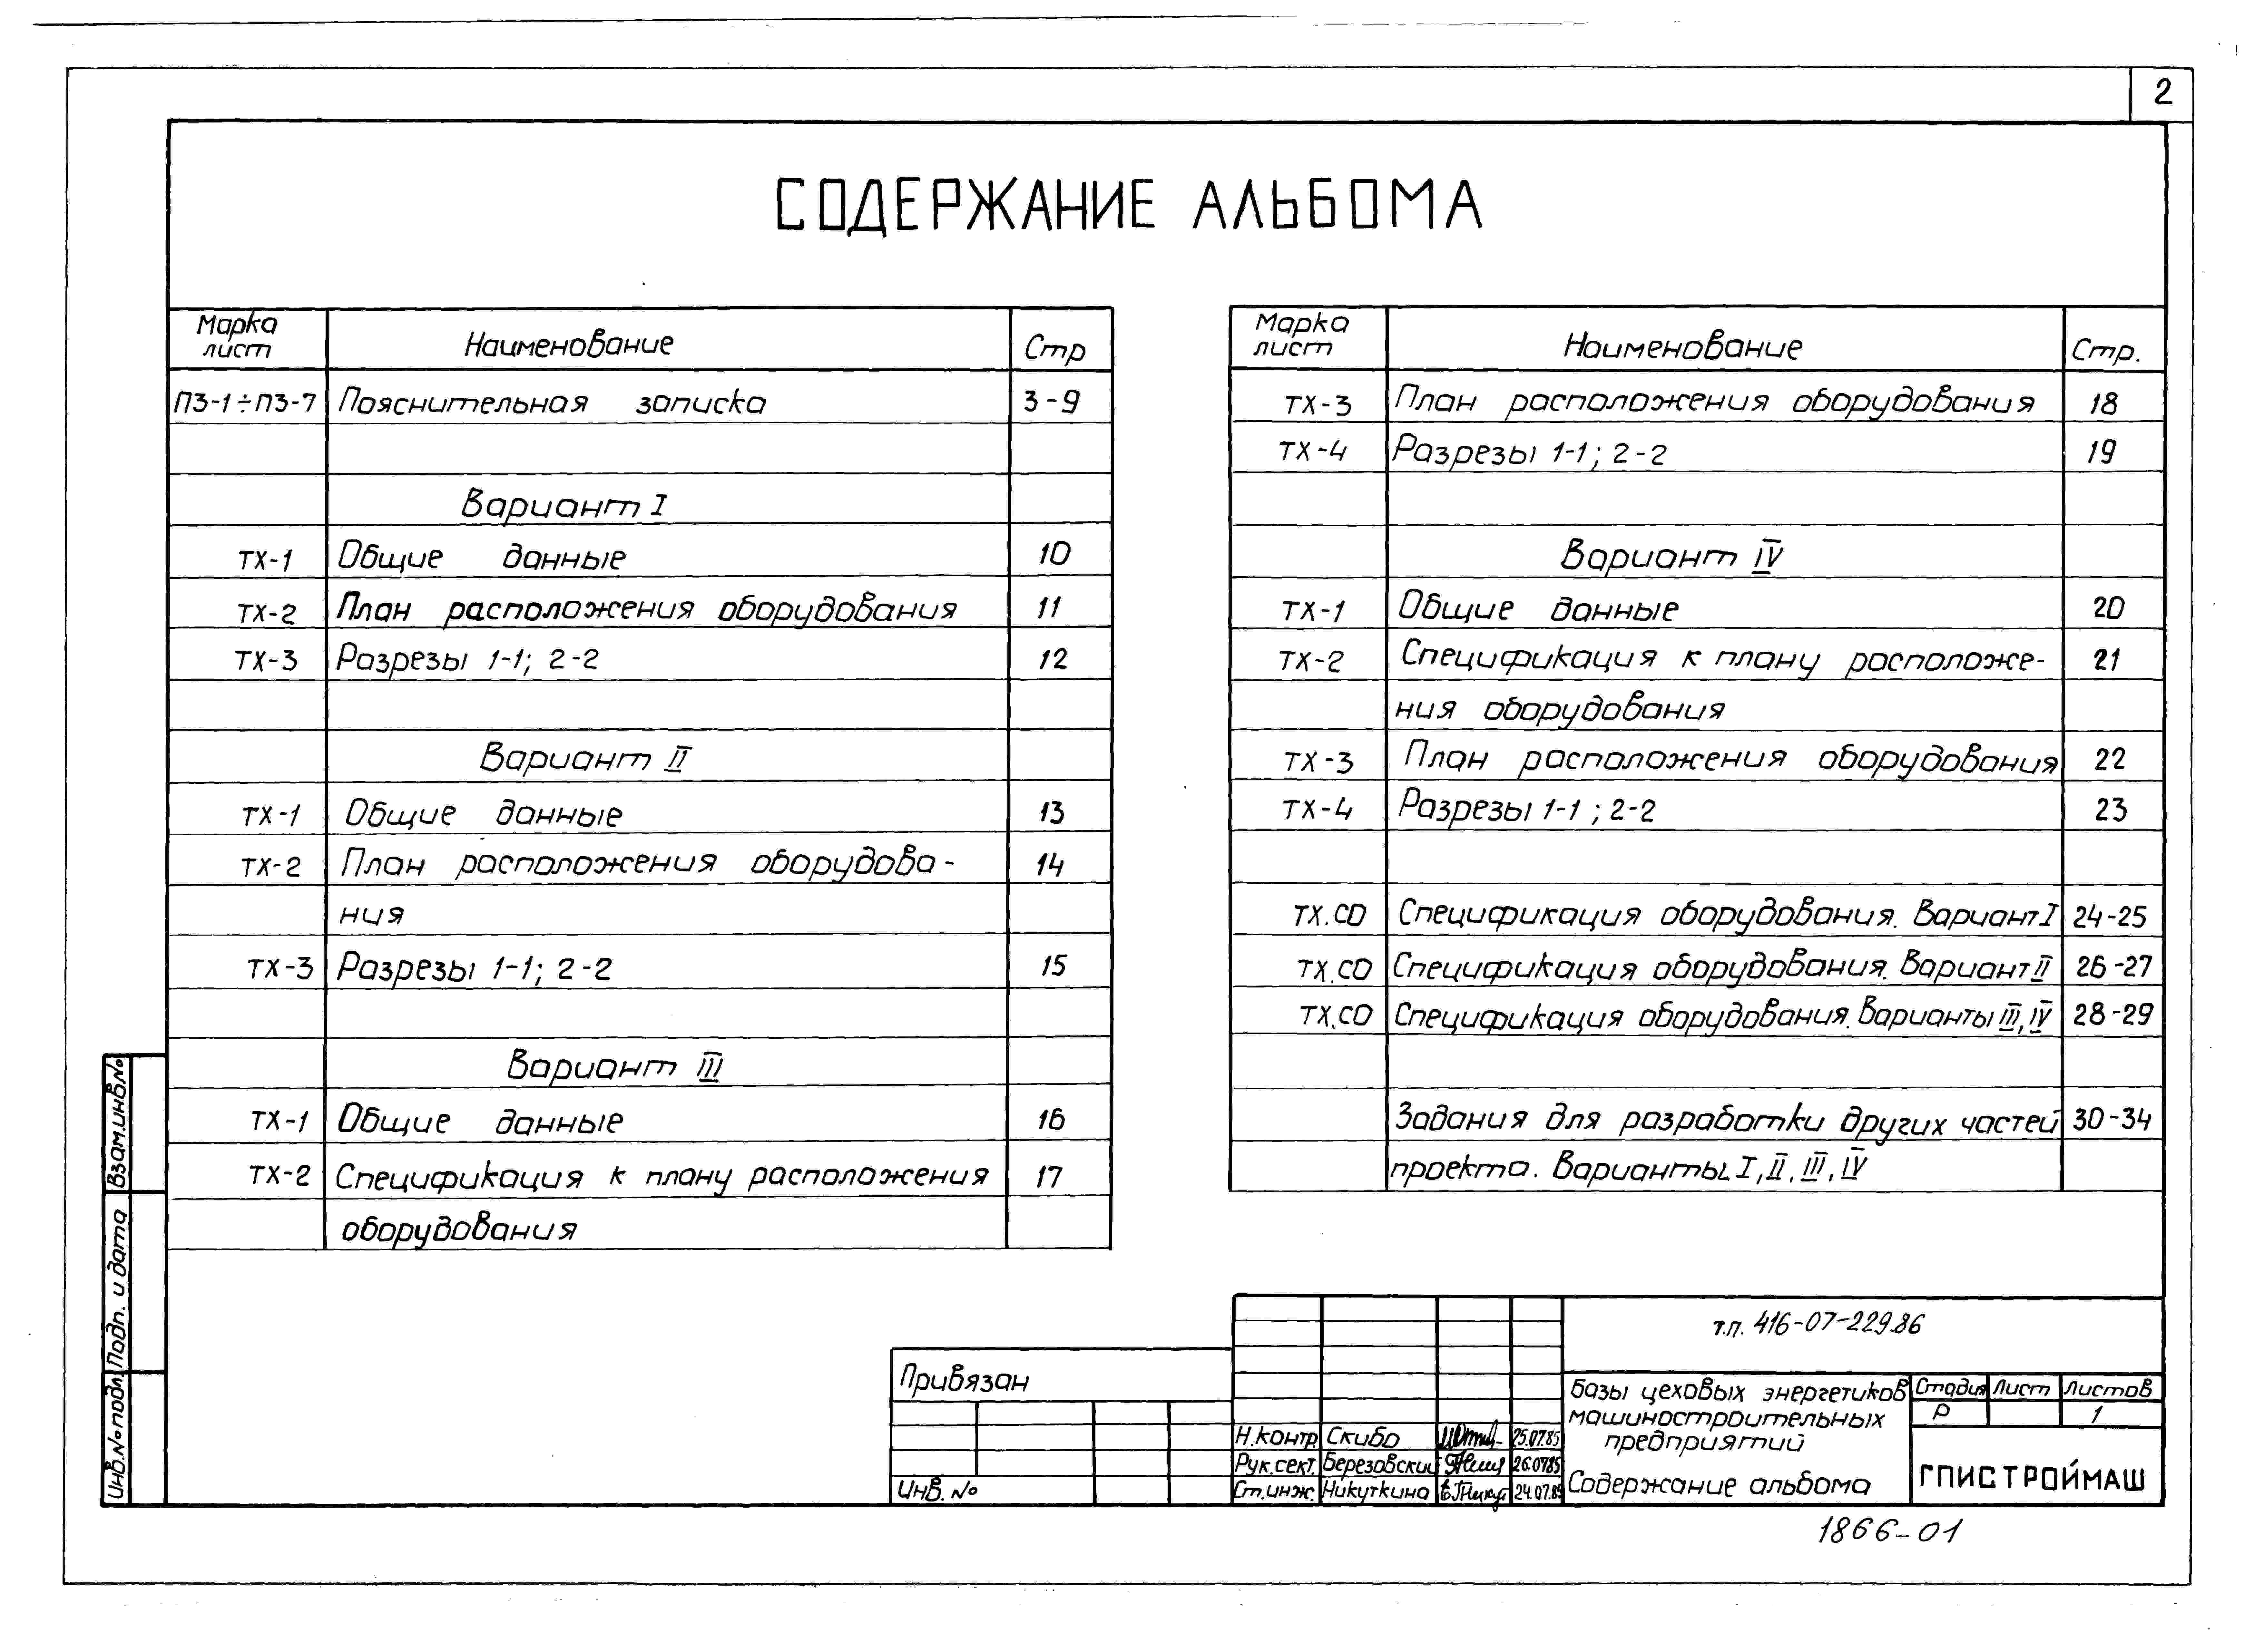 2
СОДЕРЖАНИЕ АЛЬБОМА
Марка лист Наименование Стр
ПЗ-1÷ПЗ-7 Пояснительная записка 3-9
Вариант I
ТХ-1 Общие данные 10
ТХ-2 План расположения оборудования 11
ТХ-3 Разрезы 1-1; 2-2 12
Вариант II
ТХ-1 Общие данные 13
ТХ-2 План расположения оборудова- 14
ния
ТХ-3 Разрезы 1-1; 2-2 15
Вариант III
ТХ-1 Общие данные 16
ТХ-2 Спецификация к плану расположения 17
оборудования
Марка лист Наименование Стр.
ТХ-3 План расположения оборудования 18
ТХ-4 Разрезы 1-1; 2-2 19
Вариант IV
ТХ-1 Общие данные 20
ТХ-2 Спецификация к плану расположе- 21
ния оборудования
ТХ-3 План расположения оборудования 22
ТХ-4 Разрезы 1-1; 2-2 23
ТХ.СО Спецификация оборудования. Вариант I 24-25
ТХ.СО Спецификация оборудования. Вариант II 26-27
ТХ.СО Спецификация оборудования. Варианты III, IV 28-29
Задания для разработки других частей 30-34
проекта. Варианты I, II, III, IV
Взам.инв№
Подп. и дата
Инв.№подл.
Привязан
Инв. №
т.п. 416-07-229.86
Н.контр. Скибо 25.07.85
Рук.сект. Березовский 26.07.85
Ст.инж. Никуткина 24.07.85
Базы цеховых энергетиков
машиностроительных
предприятий
Содержание альбома
Стадия Лист Листов
Р 1
ГПИСТРОЙМАШ
1866-01